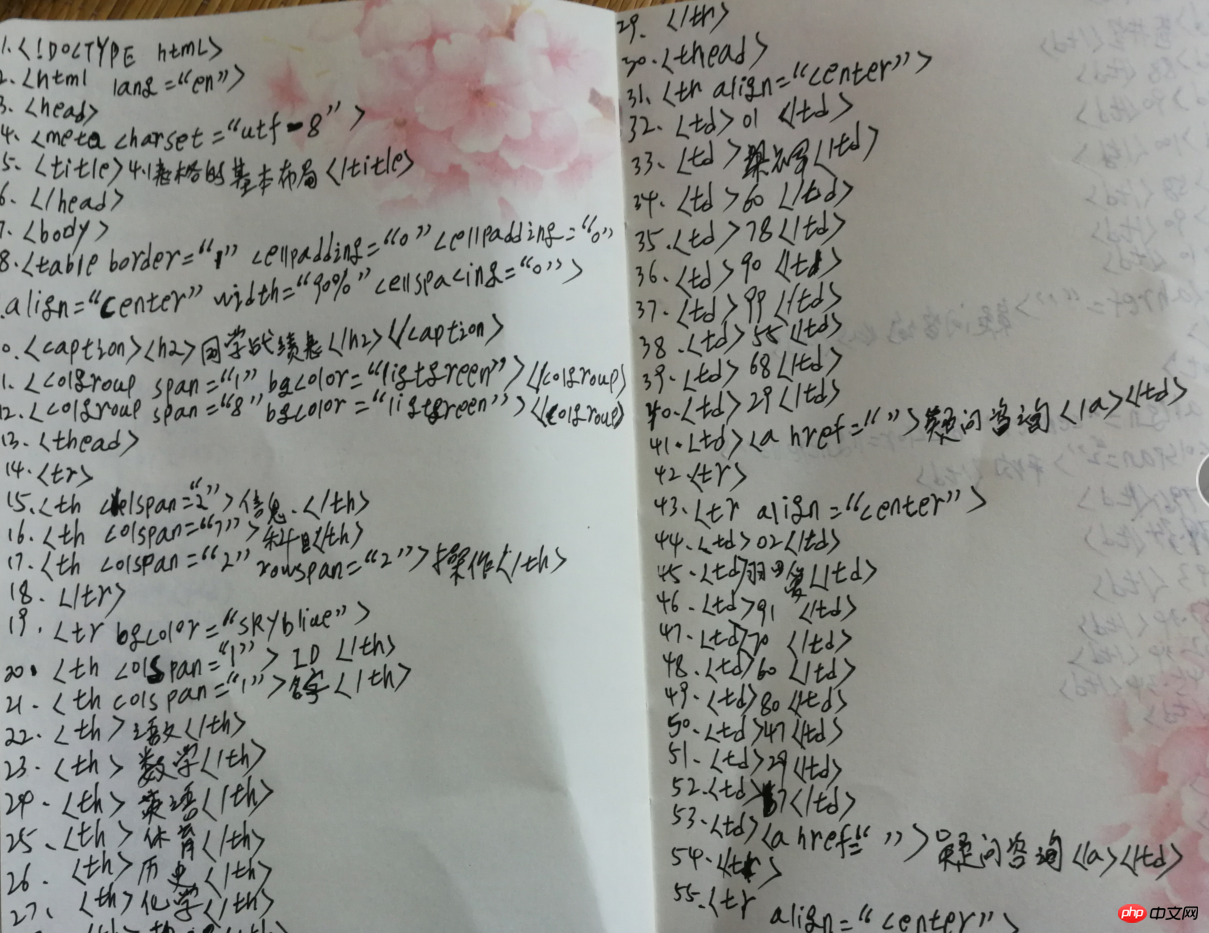 1.<!DOCTYPE html>
2.<html lang="en">
3.<head>
4.<meta charset="utf-8">
5.<title>4.1表格的基本布局</title>
6.</head>
7.<body>
8.<table border="1" cellpadding="0" cellpadding="0"
.align="center" width="90%" cellspacing="0">
0.<caption><h2>同学成绩表</h2></caption>
1.<colgroup span="1" bgcolor="ligtgreen"></colgroup>
12.<colgroup span="8" bgcolor="ligtgreen"></colgroup>
13.<thead>
14.<tr>
15.<th colspan="2">信息.</th>
16.<th colspan="7">科目</th>
17.<th colspan="2" rowspan="2">操作</th>
18.</tr>
19.<tr bgcolor="skyblue">
20.<th colspan="1">ID</th>
21.<th colspan="1">名字</th>
22.<th>语文</th>
23.<th>数学</th>
24.<th>英语</th>
25.<th>体育</th>
26.<th>历史</th>
27.<th>化学</th>
<th></th>
29.</th>
30.<thead>
31.<tr align="center">
32.<td>01</td>
33.<td></td>
34.<td>60</td>
35.<td>78</td>
36.<td>90</td>
37.<td>99</td>
38.<td>55</td>
39.<td>68</td>
40.<td>29</td>
41.<td><a href="">疑问咨询</a><td>
42.<tr>
43.<tr align="center">
44.<td>02</td>
45.<td></td>
46.<td>91</td>
47.<td>70</td>
48.<td>60</td>
49.<td>80</td>
50.<td>47</td>
51.<td>29</td>
52.<td>57</td>
53.<td><a href="">疑问咨询</a></td>
54.</tr>
55.<tr align="center">
php中文网